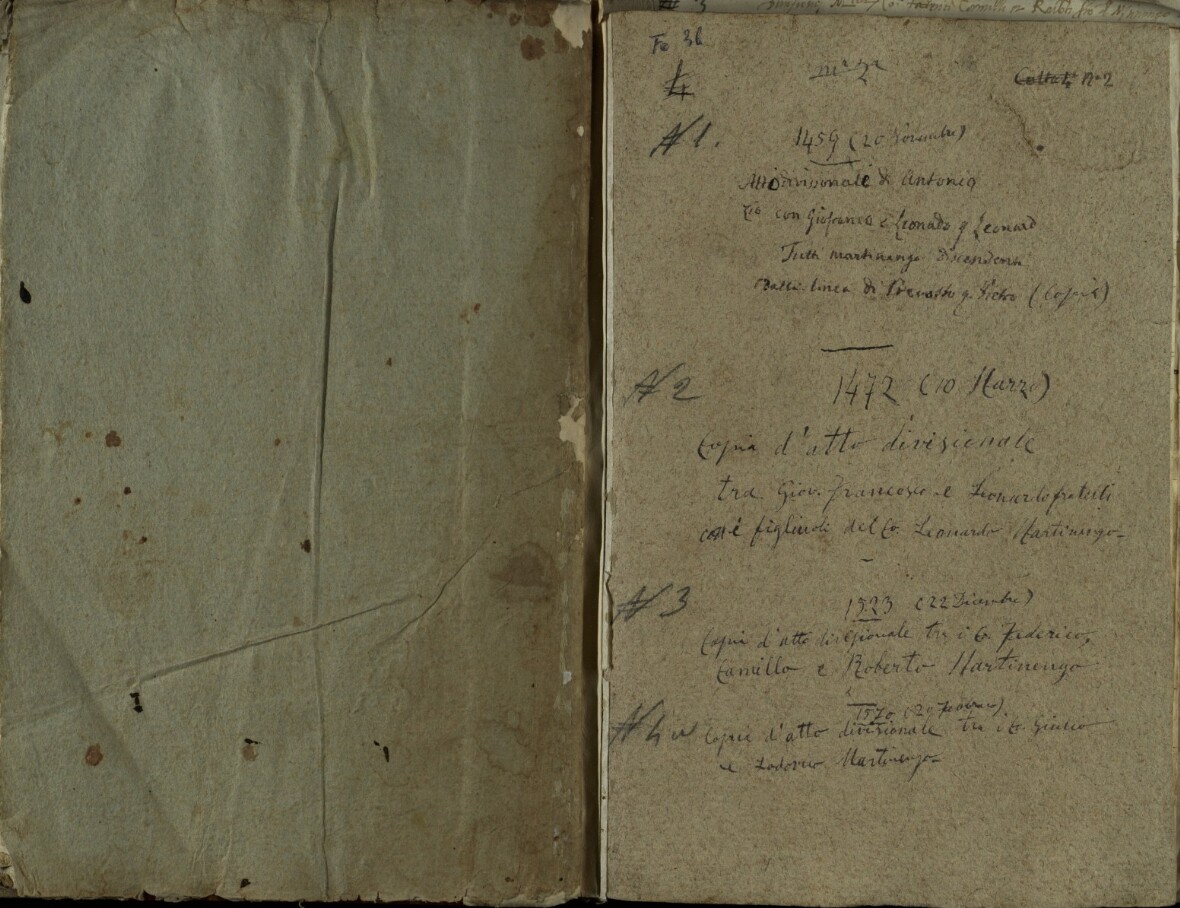 Fe 3b
4
N 1.
1459 (20 Novembre)
Atto divisionale di Antonio
zio con Giofranco e Leonardo q Leonard
Tutti martinengo Discendenti
Dalla linea di q. Pietro (Copia)
N 2
1472 (10 Marzo)
Copia d'atto divisionale
tra Giov. Francesco e Leonardo fratelli
figliuoli del Co. Leonardo Martinengo
N 3
1523 (22 Dicembre)
Copia d'atto divisionale tra i Co. Federico,
Camillo e Roberto Martinengo
1570 (20
N 4
Copia d'atto divisionale tra i Co. Giulio
e Lodovico Martinengo